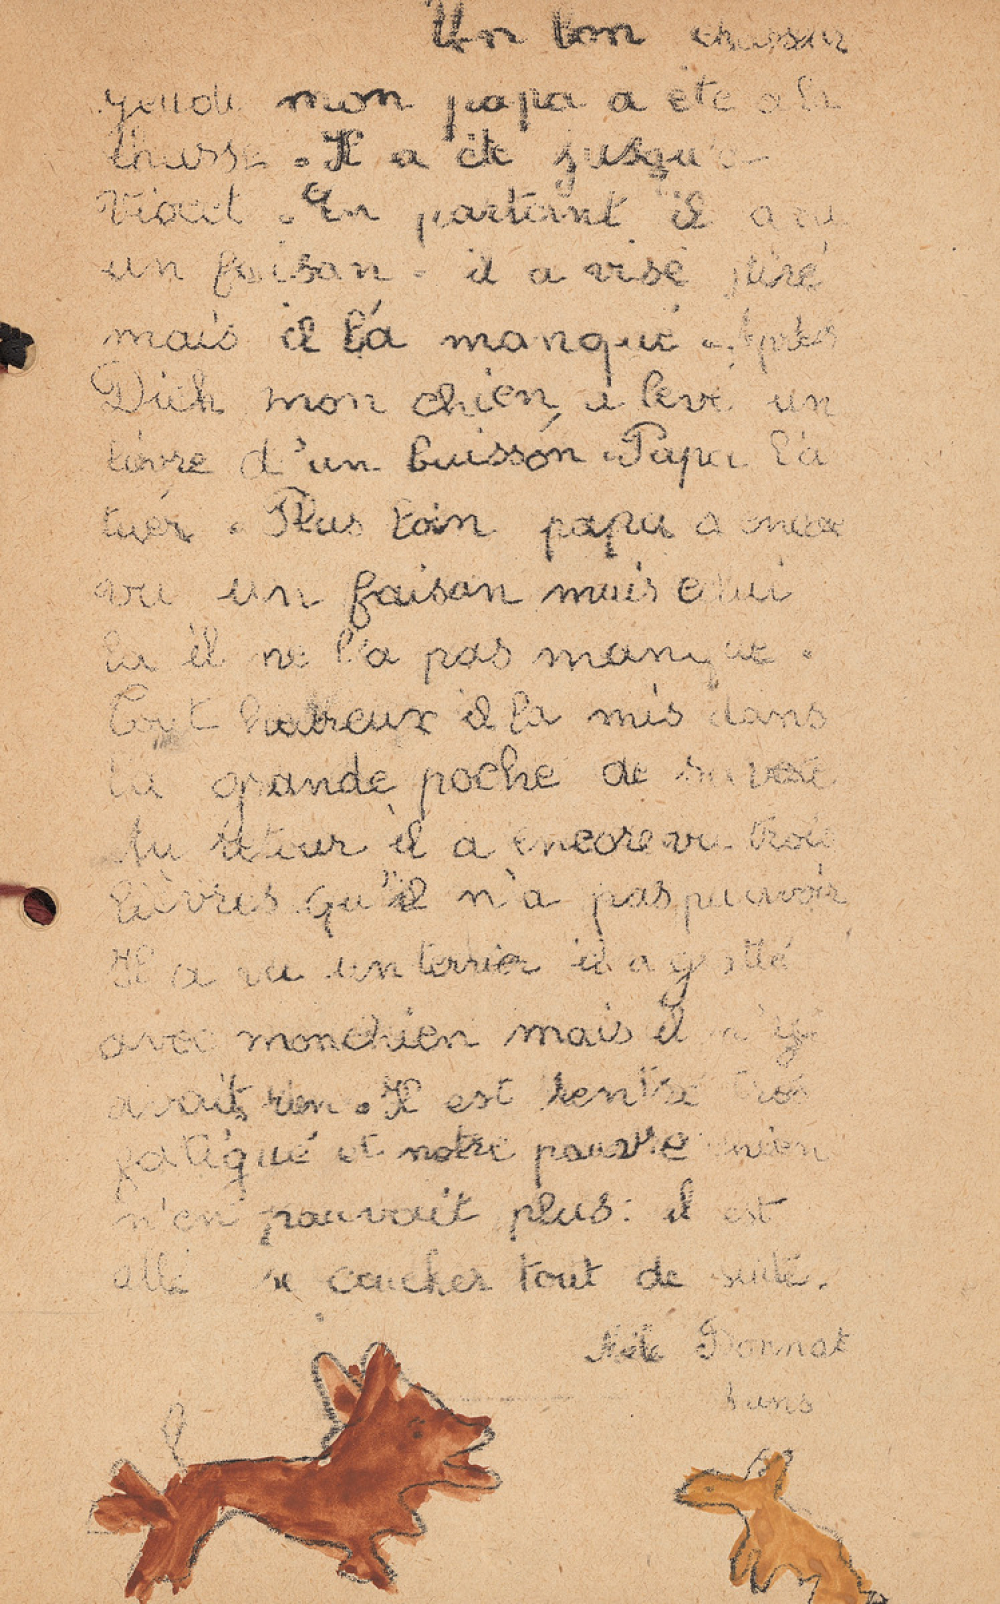 Un bon chasseur
yeudi mon papa a été a la
chasse . Il a été jusqu'a
Violet . En partant il a vu
un faisan . il a visé , tiré
mais il l'a manqué . Après
Dich mon chien a levé un
lièvre d'un buisson . Papa l'a
tuer . Plus loin papa a encore
vu un faisan mais celui
la il ne l'a pas manqué .
Tout heureux il la mis dans
la grande poche de sa veste
Au retour il a encore vu trois
lièvres qu'il n'a pas pu avoir
Il a vu un terrier il a gratté
avec mon chien mais il n'y
avait rien . Il est rentré très
fatigué et notre pauvre chien
n'en pouvait plus : il est
allé se coucher tout de suite .
Donnat
ans